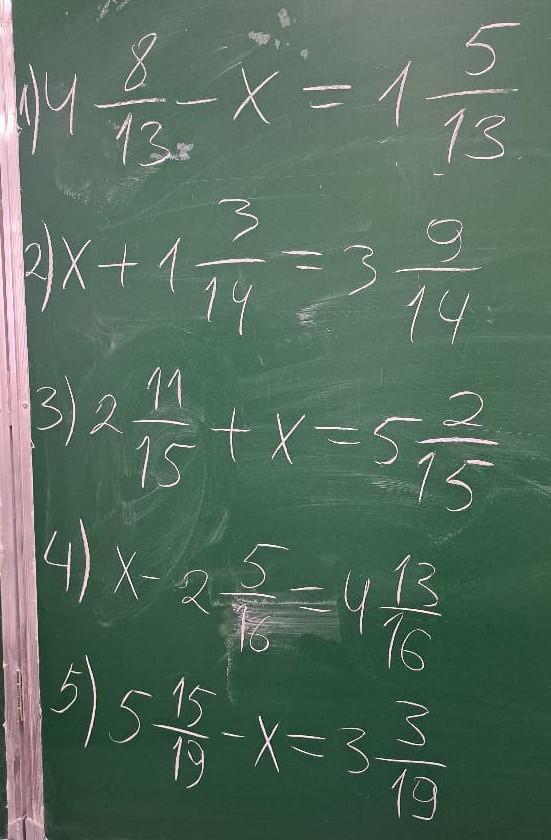 1) 4 8/13 - x = 1 5/13
2) x + 1 3/14 = 3 9/14
3) 2 11/15 + x = 5 2/15
4) x - 2 5/16 = 4 13/16
5) 5 15/19 - x = 3 3/19